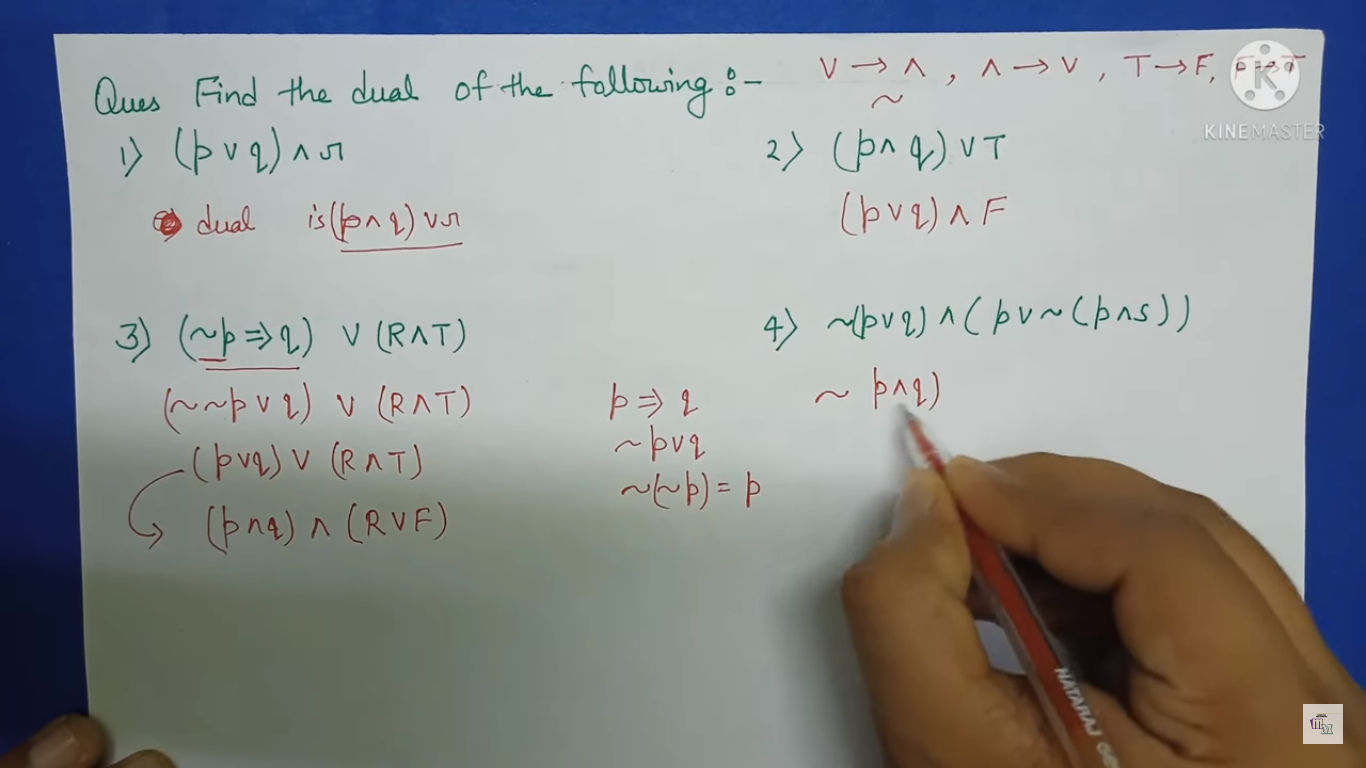 Ques Find the dual of the following :-
V → Λ , Λ → V , T → F, F → T
~
KINEMASTER
1) (p ∨ q) ∧ r
dual is (p ∧ q) ∨ r
2) (p ∧ q) ∨ T
(p ∨ q) ∧ F
3) (~p ⇒ q) ∨ (R ∧ T)
(~ ~p ∨ q) ∨ (R ∧ T)
(p ∨ q) ∨ (R ∧ T)
(p ∧ q) ∧ (R ∨ F)
p ⇒ q
~ p ∨ q
~(~p) = p
4) ~(p ∨ q) ∧ (p ∨ ~(p ∧ s))
~ p ∧ q)
NATARAJ